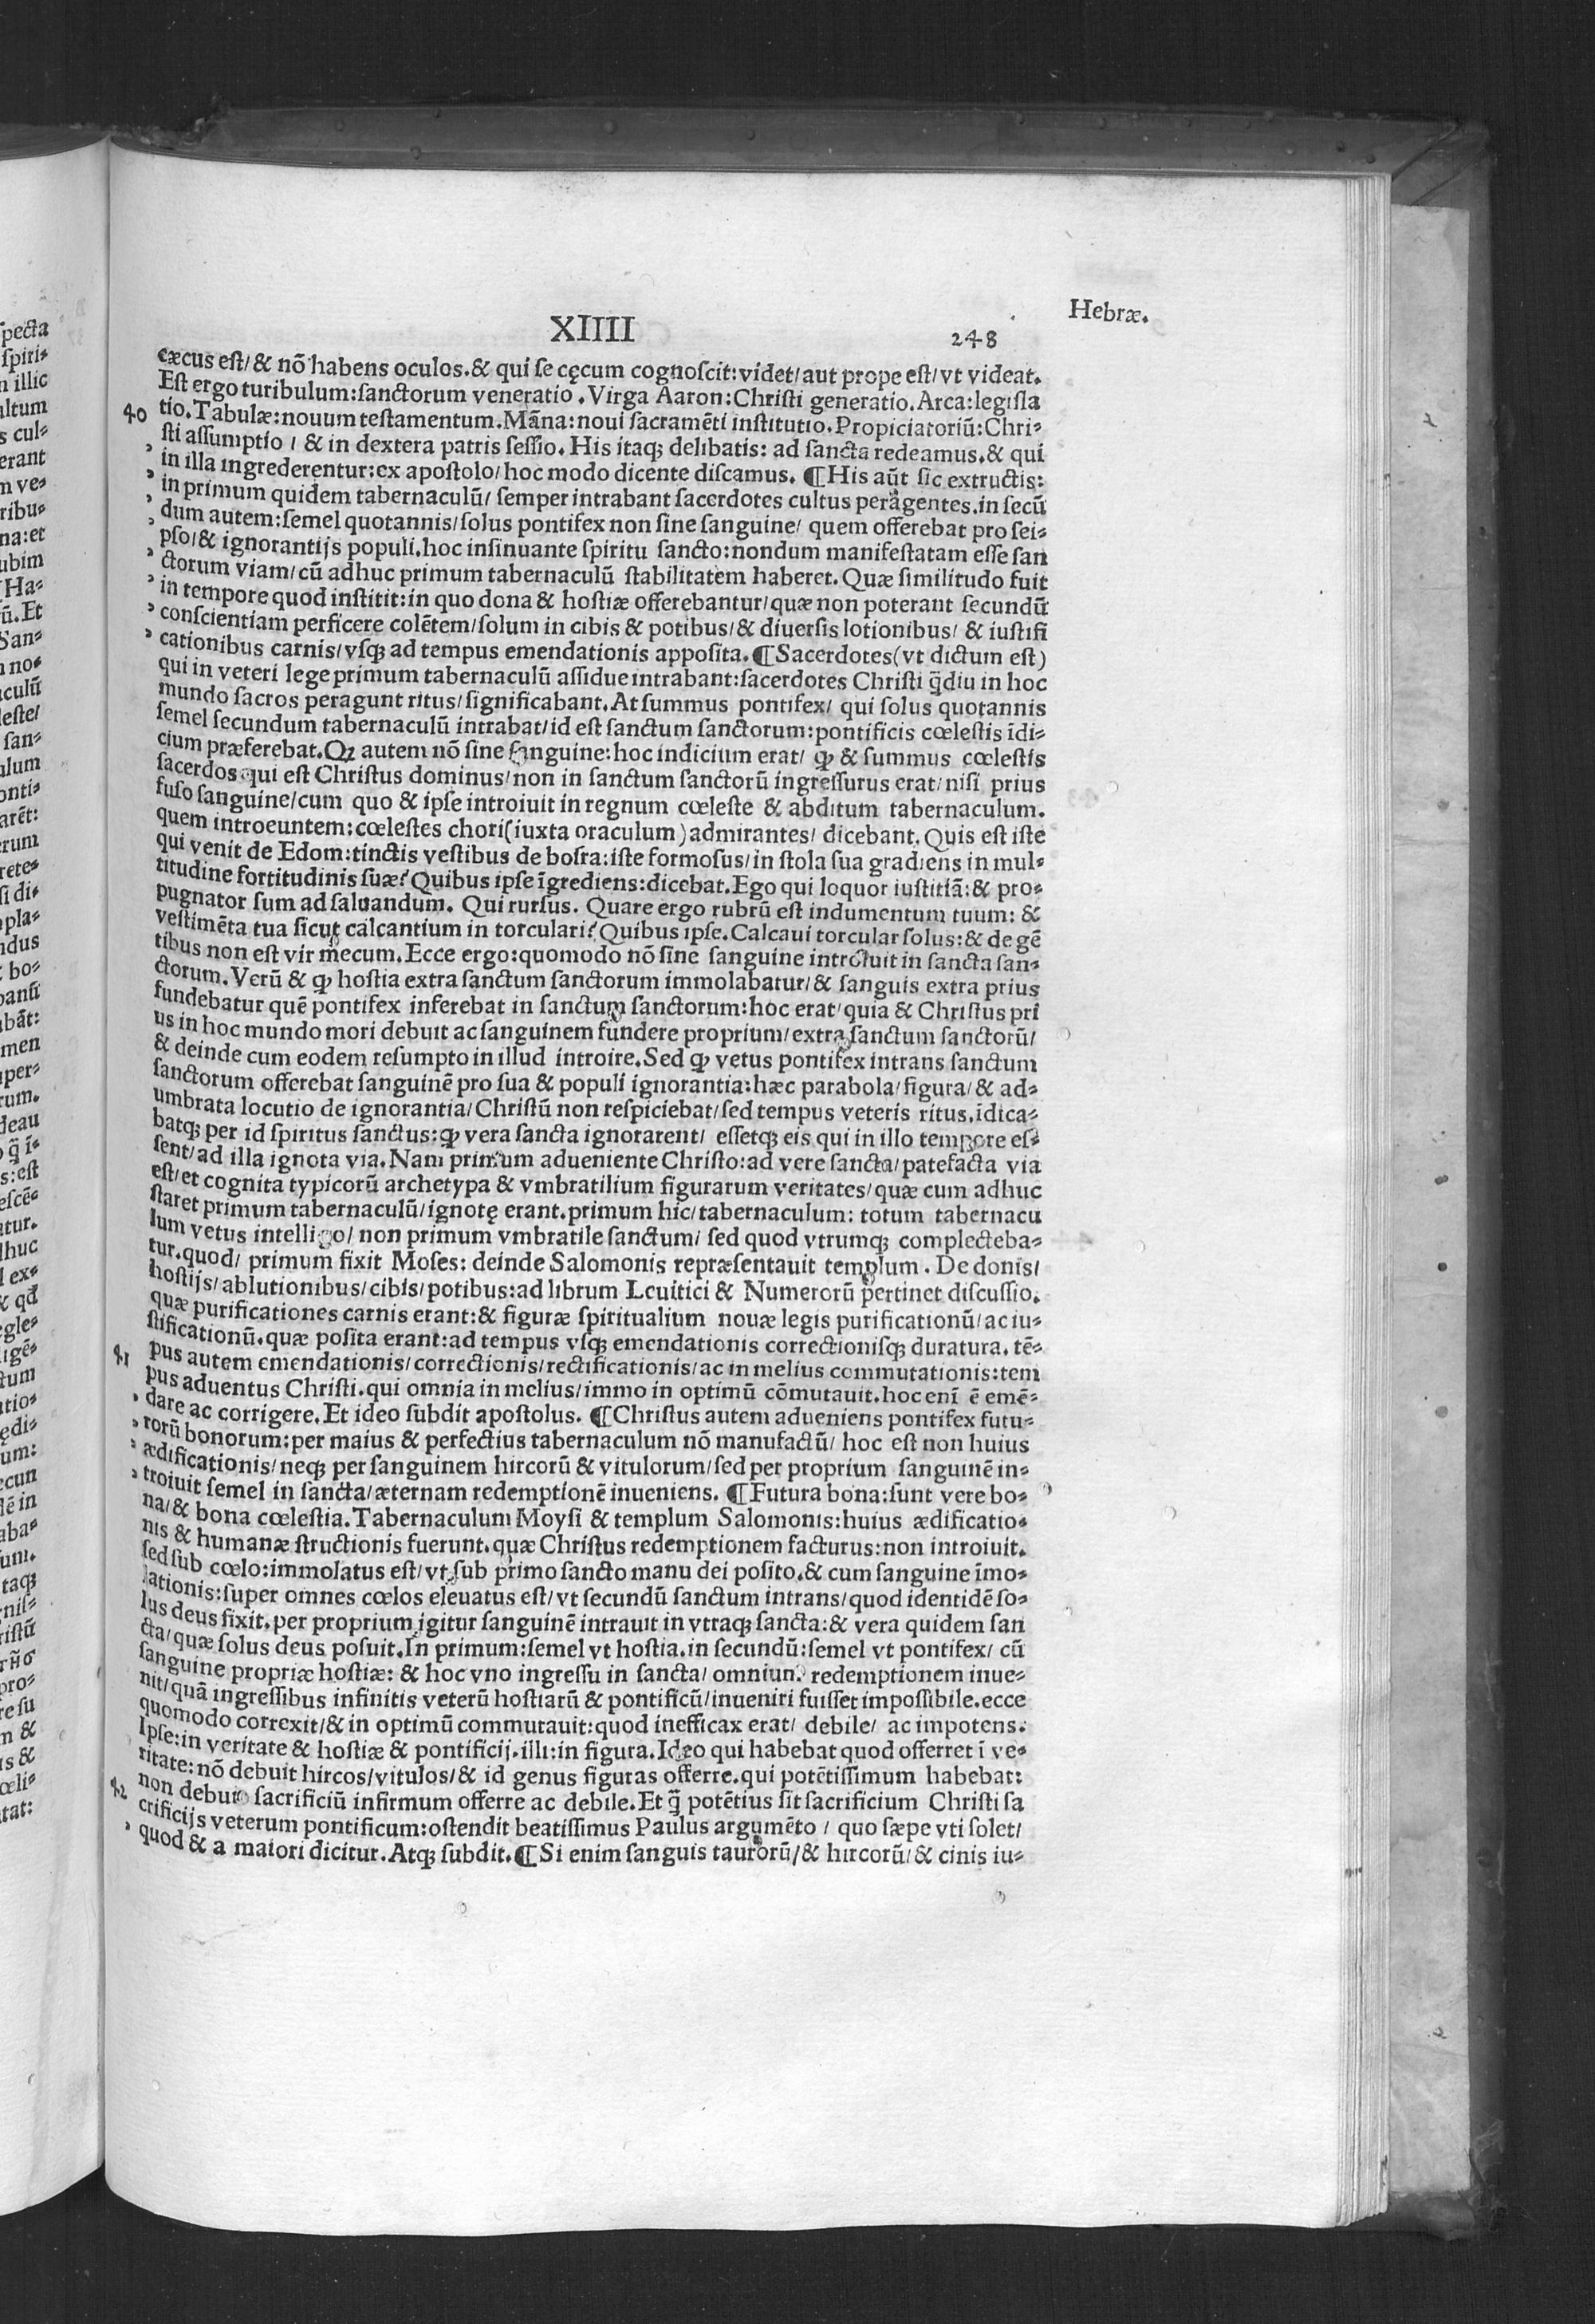 XIIII
248
Hebræ.
cæcus est/ & nõ habens oculos. & qui se cęcum cognoscit: videt/ aut prope est/ vt videat.
Est ergo turibulum: sanctorum veneratio. Virga Aaron: Christi generatio. Arca: legisla
40 tio. Tabulæ: nouum testamentum. Mãna: noui sacramẽti institutio. Propiciatoriũ: Chri-
sti assumptio/ & in dextera patris sessio. His itaqꝫ delibatis: ad sancta redeamus. & qui
in illa ingrederentur: ex apostolo/ hoc modo dicente discamus. ¶ His aũt sic extructis:
in primum quidem tabernaculũ/ semper intrabant sacerdotes cultus peragentes. in secũ
dum autem: semel quotannis/ solus pontifex non sine sanguine/ quem offerebat pro sei-
pso/ & ignorantijs populi. hoc insinuante spiritu sancto: nondum manifestatam esse san
ctorum viam/ cũ adhuc primum tabernaculũ stabilitatem haberet. Quæ similitudo fuit
in tempore quod institit: in quo dona & hostiæ offerebantur/ quæ non poterant secundũ
conscientiam perficere colẽtem/ solum in cibis & potibus/ & diuersis lotionibus/ & iustifi
cationibus carnis/ vsqꝫ ad tempus emendationis apposita. ¶ Sacerdotes (vt dictum est)
qui in veteri lege primum tabernaculũ assidue intrabant: sacerdotes Christi q̃diu in hoc
mundo sacros peragunt ritus/ significabant. At summus pontifex/ qui solus quotannis
semel secundum tabernaculũ intrabat/ id est sanctum sanctorum: pontificis cœlestis ĩdi-
cium præferebat. Qꝫ autem nõ sine sanguine: hoc indicium erat/ ꝙ & summus cœlestis
sacerdos qui est Christus dominus/ non in sanctum sanctorũ ingressurus erat/ nisi prius
fuso sanguine/ cum quo & ipse introiuit in regnum cœleste & abditum tabernaculum.
quem introeuntem: cœlestes chori (iuxta oraculum) admirantes/ dicebant. Quis est iste
qui venit de Edom: tinctis vestibus de bosra: iste formosus/ in stola sua gradiens in mul-
titudine fortitudinis suæ? Quibus ipse ĩgrediens: dicebat. Ego qui loquor iustitiã: & pro-
pugnator sum ad saluandum. Qui rursus. Quare ergo rubrũ est indumentum tuum: &
vestimẽta tua sicut calcantium in torculari? Quibus ipse. Calcaui torcular solus: & de gẽ
tibus non est vir mecum. Ecce ergo: quomodo nõ sine sanguine introiuit in sancta san-
ctorum. Verũ & ꝙ hostia extra sanctum sanctorum immolabatur/ & sanguis extra prius
fundebatur quẽ pontifex inferebat in sanctum sanctorum: hoc erat/ quia & Christus pri
us in hoc mundo mori debuit ac sanguinem fundere proprium/ extra sanctum sanctorũ/
& deinde cum eodem resumpto in illud introire. Sed ꝙ vetus pontifex intrans sanctum
sanctorum offerebat sanguinẽ pro sua & populi ignorantia: hæc parabola/ figura/ & ad-
umbrata locutio de ignorantia/ Christũ non respiciebat/ sed tempus veteris ritus. ĩdica-
batqꝫ per id spiritus sanctus: ꝙ vera sancta ignorarent/ essetqꝫ eis qui in illo tempore es-
sent/ ad illa ignota via. Nam primum adueniente Christo: ad vere sancta/ patefacta via
est/ et cognita typicorũ archetypa & vmbratilium figurarum veritates/ quæ cum adhuc
staret primum tabernaculũ/ ignotę erant. primum hic/ tabernaculum: totum tabernacu
lum vetus intelligo/ non primum vmbratile sanctum/ sed quod vtrumqꝫ complecteba-
tur. quod/ primum fixit Moses: deinde Salomonis repræsentauit templum. De donis/
hostijs/ ablutionibus/ cibis/ potibus: ad librum Leuitici & Numerorũ pertinet discussio.
quæ purificationes carnis erant: & figuræ spiritualium nouæ legis purificationũ/ ac iu-
stificationũ. quæ posita erant: ad tempus vsqꝫ emendationis correctionisqꝫ duratura. tẽ-
41 pus autem emendationis/ correctionis/ rectificationis/ ac in melius commutationis: tem
pus aduentus Christi. qui omnia in melius/ immo in optimũ cõmutauit. hoc enĩ ẽ emẽ-
dare ac corrigere. Et ideo subdit apostolus. ¶ Christus autem adueniens pontifex futu-
rorũ bonorum: per maius & perfectius tabernaculum nõ manufactũ/ hoc est non huius
ædificationis/ neqꝫ per sanguinem hircorũ & vitulorum/ sed per proprium sanguinẽ in-
troiuit semel in sancta/ æternam redemptionẽ inueniens. ¶ Futura bona: sunt vere bo-
na/ & bona cœlestia. Tabernaculum Moysi & templum Salomonis: huius ædificatio-
nis & humanæ structionis fuerunt. quæ Christus redemptionem facturus: non introiuit.
sed sub cœlo: immolatus est/ vt sub primo sancto manu dei posito. & cum sanguine ĩmo-
lationis: super omnes cœlos eleuatus est/ vt secundũ sanctum intrans/ quod identidẽ so-
lus deus fixit. per proprium igitur sanguinẽ intrauit in vtraqꝫ sancta: & vera quidem san
cta/ quæ solus deus posuit. In primum: semel vt hostia. in secundũ: semel vt pontifex/ cũ
sanguine propriæ hostiæ: & hoc vno ingressu in sancta/ omnium redemptionem inue-
nit/ quã ingressibus infinitis veterũ hostiarũ & pontificũ/ inueniri fuisset impossibile. ecce
quomodo correxit/ & in optimũ commutauit: quod inefficax erat/ debile/ ac impotens.
Ipse: in veritate & hostiæ & pontificij. illi: in figura. Ideo qui habebat quod offerret ĩ ve-
ritate: nõ debuit hircos/ vitulos/ & id genus figuras offerre. qui potẽtissimum habebat:
42 non debuit sacrificiũ infirmum offerre ac debile. Et q̃ potẽtius sit sacrificium Christi sa
crificijs veterum pontificum: ostendit beatissimus Paulus argumẽto/ quo sæpe vti solet/
quod & a maiori dicitur. Atqꝫ subdit. ¶ Si enim sanguis taurorũ/ & hircorũ/ & cinis iu-